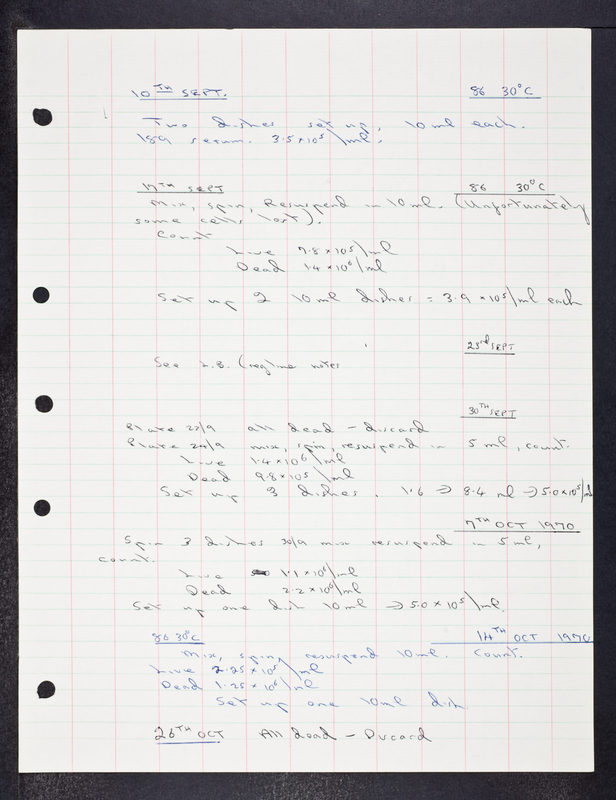 10TH SEPT. 86 30°C
Two dishes set up, 10 ml each.
189 serum. 3.5 x 10⁵/ml.
17TH SEPT 86 30°C
Mix, spin, Resuspend in 10 ml. (Unfortunately
some cells lost).
Count
Live 7.8 x 10⁵/ml
Dead 1.4 x 10⁶/ml
Set up 2 10 ml dishes = 3.9 x 10⁵/ml each
23rd SEPT
See L.B. (regime notes
30TH SEPT
Plate 22/9 all dead - discard
Plate 24/9 mix, spin, resuspend in 5 ml, count.
Live 1.4 x 10⁶/ml
Dead 9.8 x 10⁵/ml
Set up 3 dishes. 1.6 → 8.4 ml → 5.0 x 10⁵/ml
7TH OCT 1970
Spin 3 dishes 30/9 mix resuspend in 5 ml,
count.
Live 1.1 x 10⁶/ml
Dead 2.2 x 10⁶/ml
Set up one dish 10 ml → 5.0 x 10⁵/ml.
86 30°C 14TH OCT 1970
Mix, spin, resuspend 10 ml. Count.
Live 2.25 x 10⁵/ml
Dead 1.25 x 10⁶/ml
Set up one 10 ml dish
26TH OCT All dead - Discard